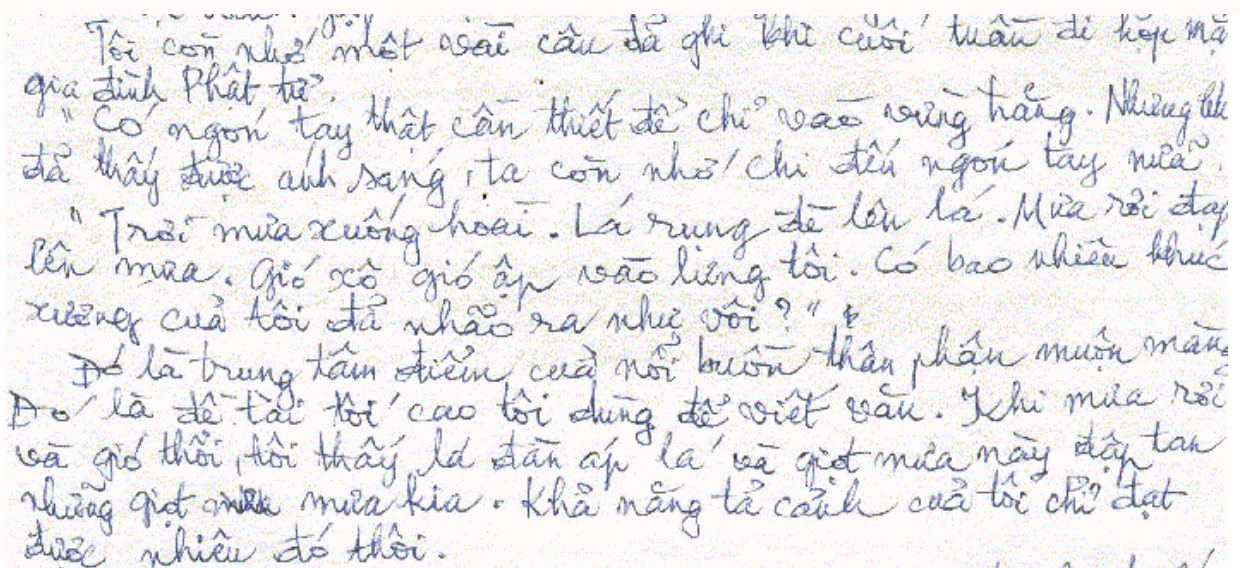 Tôi còn nhớ một vài câu đã ghi khi cuối tuần đi họp mặ
gia đình Phật tử.
" Có ngón tay thật cần thiết để chỉ vào vừng hằng. Nhưng
đã thấy được ánh sáng, ta còn nhớ chi đến ngón tay nữa.
" Trời mưa xuống hoài. Lá rụng đè lên lá. Mưa rơi đạp
lên mưa. Gió xô gió ập vào lưng tôi. Có bao nhiêu khúc
xương của tôi đã nhão ra như vôi?"
Đó là trung tâm điểm của nỗi buồn thân phận muộn màng
Đó là đề tài tối cao tôi dùng để viết văn. Khi mưa rơi
và gió thổi, tôi thấy lá đàn áp lá và giọt mưa này đập tan
những giọt mưa kia. Khả năng tả cảnh của tôi chỉ đạt
được nhiêu đó thôi.